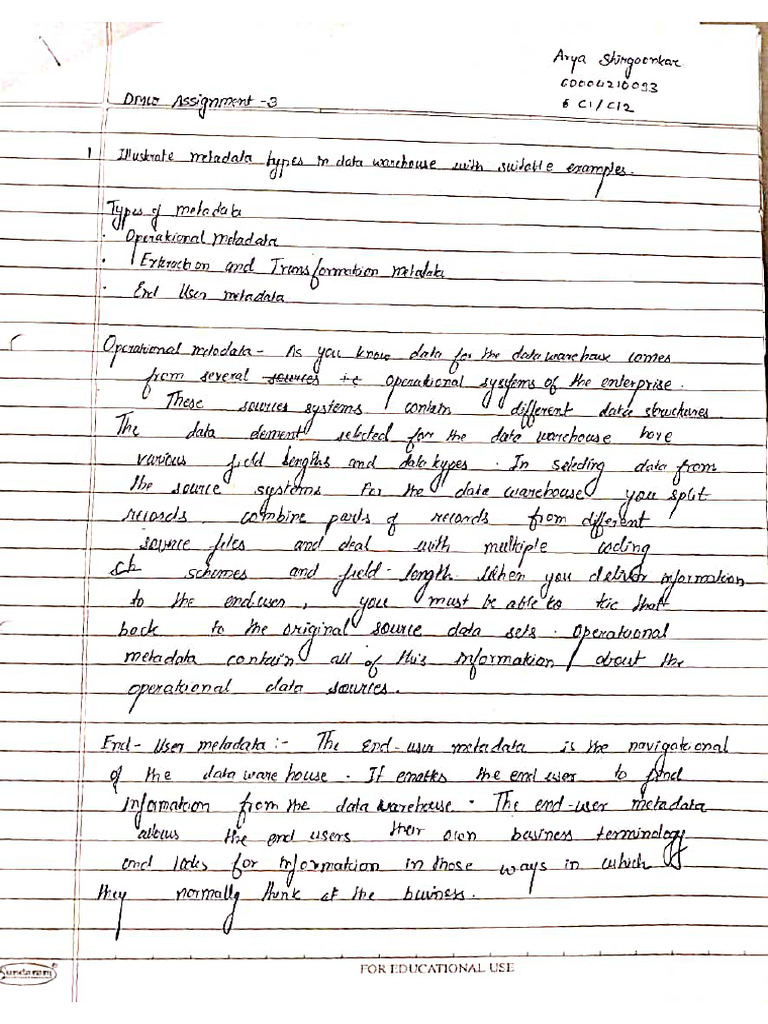 Arya Shirgaonkar
60004210093
C1/C12
DMW Assignment - 3
1 Illustrate metadata types in data warehouse with suitable examples.
Types of metadata
· Operational metadata
· Extraction and Transformation metadata
· End User metadata
Operational metadata - As you know data for the data warehouse comes
from several sources i.e operational systems of the enterprise.
These sources systems contain different data structures
The data element selected for the data warehouse have
various field lengths and data types. In selecting data from
the source systems for the data warehouse you split
records, combine parts of records from different
source files and deal with multiple coding
schemes and field-length. When you deliver information
to the end user, you must be able to tie that
back to the original source data sets. Operational
metadata contain all of this information about the
operational data sources.
End-User metadata :- The end-user metadata is the navigational
of the data ware house. It enables the end user to find
information from the data warehouse. The end-user metadata
allows the end users their own business terminology
and looks for information in those ways in which
they normally think of the business.
Sundaram
FOR EDUCATIONAL USE